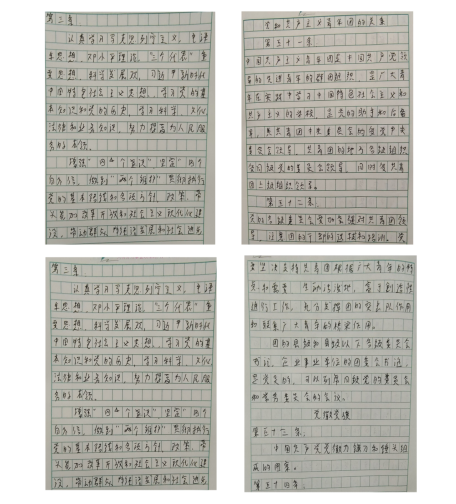 第三条
认真学习马克思列宁主义、毛泽
东思想、邓小平理论、“三个代表”重
要思想、科学发展观、习近平新时代
中国特色社会主义思想，学习党的基
本知识和党的历史，学习科学、文化、
法律和业务知识，努力提高为人民服
务的本领。
增强“四个意识”、坚定“四个
自信”、做到“两个维护”，贯彻执行
党的基本路线和各项方针、政策，带
头参加改革开放和社会主义现代化建
设，带动群众为经济发展和社会进步
党和共产主义青年团的关系
第五十一条
中国共产主义青年团是中国共产党领
导的先进青年的群团组织，是广大青
年在实践中学习中国特色社会主义和
共产主义的学校，是党的助手和后备
军。共青团中央委员会受党中央
委员会领导。共青团的地方各级组织
受同级党的委员会领导，同时受共青
团上级组织领导。
第五十二条
党的各级委员会要加强对共青团领
导，注意团的干部的选拔和培训。党
第三条
认真学习马克思列宁主义、毛泽
东思想、邓小平理论、“三个代表”重
要思想、科学发展观、习近平新时代
中国特色社会主义思想，学习党的基
本知识和党的历史，学习科学、文化、
法律和业务知识，努力提高为人民服
务的本领。
增强“四个意识”、坚定“四个
自信”、做到“两个维护”，贯彻执行
党的基本路线和各项方针、政策，带
头参加改革开放和社会主义现代化建
设，带动群众为经济发展和社会进步
要坚决支持共青团根据广大青年的特
点和需要，生动活泼地、富于创造性
进行工作，充分发挥团的突击队作用
和联系广大青年的桥梁作用。
团的县级和县级以下各级委员会
书记，企业事业单位的团委会书记，
是党员的，可以列席同级党的委员会
和常务委员会的会议。
党徽党旗
第五十三条
中国共产党党徽为镰刀和锤头组
成的图案。
第五十四条